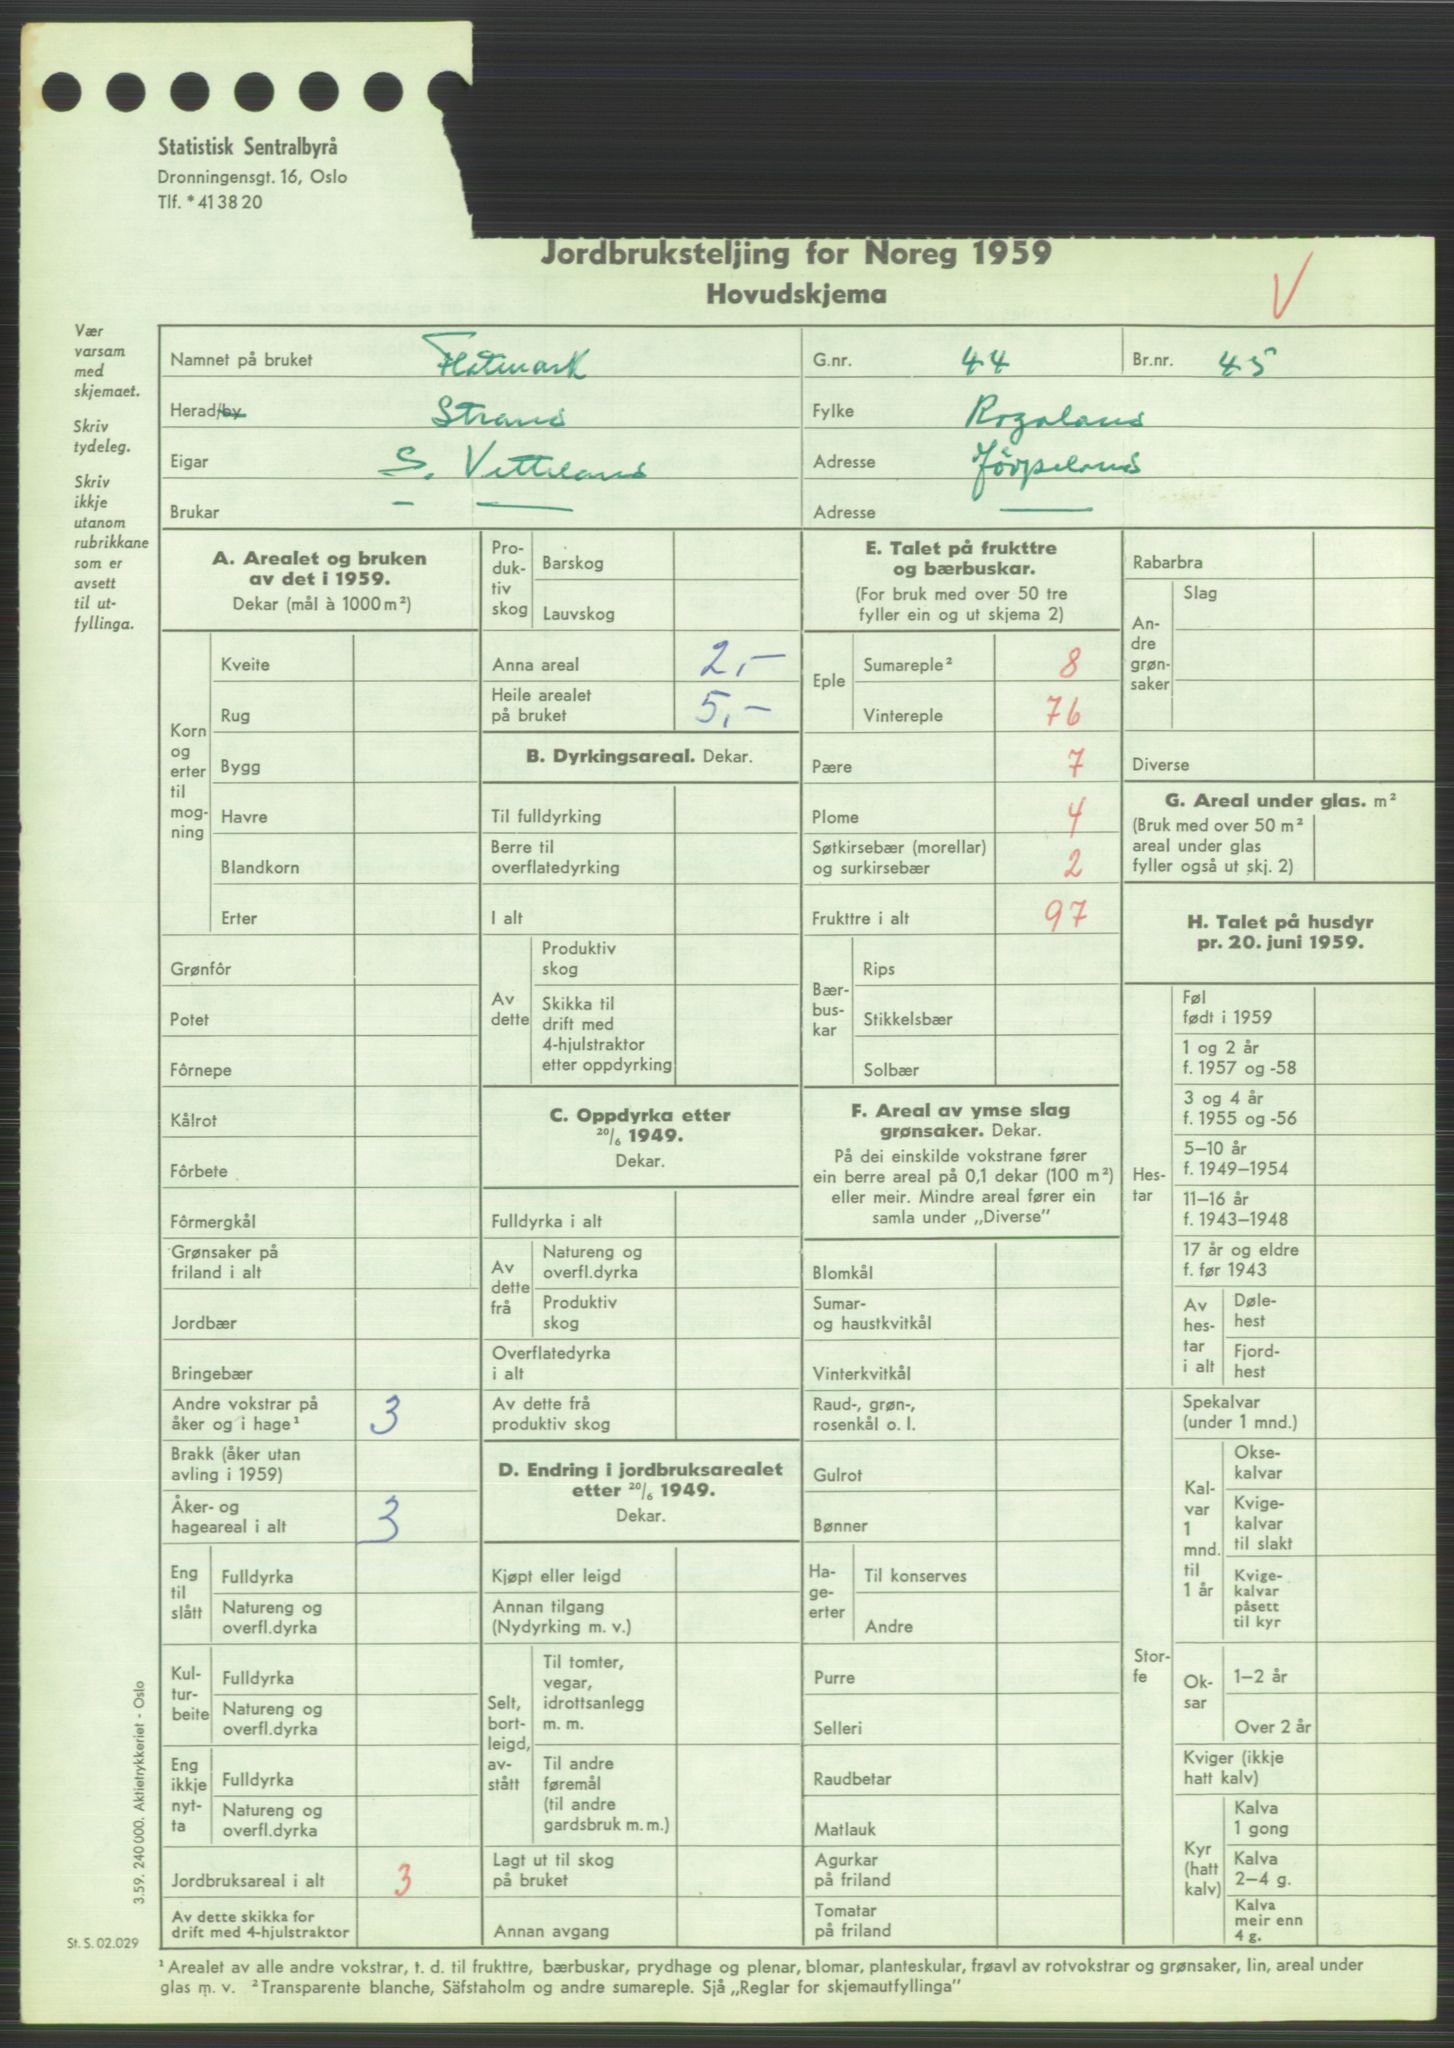 Statistisk Sentralbyrå
Dronningensgt. 16, Oslo
Tlf. * 41 38 20
Jordbruksteljing for Noreg 1959
Hovudskjema
V
Vær
varsam
med
skjemaet.
Skriv
tydeleg.
Skriv
ikkje
utanom
rubrikkane
som er
avsett
til ut-
fyllinga.
Namnet på bruket Flatmark G.nr. 44 Br.nr. 45
Herad/by Strand Fylke Rogaland
Eigar S. Adresse Jörpeland
Brukar — — Adresse —
A. Arealet og bruken
av det i 1959.
Dekar (mål à 1000 m²)
Korn
og
erter
til
mog-
ning
Kveite
Rug
Bygg
Havre
Blandkorn
Erter
Grønfôr
Potet
Fôrnepe
Kålrot
Fôrbete
Fôrmergkål
Grønsaker på
friland i alt
Jordbær
Bringebær
Andre vokstrar på
åker og i hage¹ 3
Brakk (åker utan
avling i 1959)
Åker- og
hageareal i alt 3
Eng
til
slått
Fulldyrka
Natureng og
overfl.dyrka
Kul-
tur-
beite
Fulldyrka
Natureng og
overfl.dyrka
Eng
ikkje
nyt-
ta
Fulldyrka
Natureng og
overfl.dyrka
Jordbruksareal i alt 3
Av dette skikka for
drift med 4-hjulstraktor
Pro-
duk-
tiv
skog
Barskog
Lauvskog
Anna areal 2,-
Heile arealet
på bruket 5,-
B. Dyrkingsareal. Dekar.
Til fulldyrking
Berre til
overflatedyrking
I alt
Av
dette
Produktiv
skog
Skikka til
drift med
4-hjulstraktor
etter oppdyrking
C. Oppdyrka etter
20/6 1949.
Dekar.
Fulldyrka i alt
Av
dette
frå
Natureng og
overfl.dyrka
Produktiv
skog
Overflatedyrka
i alt
Av dette frå
produktiv skog
D. Endring i jordbruksarealet
etter 20/6 1949.
Dekar.
Kjøpt eller leigd
Annan tilgang
(Nydyrking m. v.)
Selt,
bort-
leigd,
av-
stått
Til tomter,
vegar,
idrottsanlegg
m. m.
Til andre
føremål
(til andre
gardsbruk m. m.)
Lagt ut til skog
på bruket
Annan avgang
E. Talet på frukttre
og bærbuskar.
(For bruk med over 50 tre
fyller ein og ut skjema 2)
Eple
Sumareple² 8
Vintereple 76
Pære 7
Plome 4
Søtkirsebær (morellar)
og surkirsebær 2
Frukttre i alt 97
Bær-
bus-
kar
Rips
Stikkelsbær
Solbær
F. Areal av ymse slag
grønsaker. Dekar.
På dei einskilde vokstrane fører
ein berre areal på 0,1 dekar (100 m²)
eller meir. Mindre areal fører ein
samla under „Diverse”
Blomkål
Sumar-
og haustkvitkål
Vinterkvitkål
Raud-, grøn-,
rosenkål o. l.
Gulrot
Bønner
Ha-
ge-
erter
Til konserves
Andre
Purre
Selleri
Raudbetar
Matlauk
Agurkar
på friland
Tomatar
på friland
Rabarbra
An-
dre
grøn-
saker
Slag
Diverse
G. Areal under glas. m²
(Bruk med over 50 m²
areal under glas
fyller også ut skj. 2)
H. Talet på husdyr
pr. 20. juni 1959.
Hes-
tar
Føl
født i 1959
1 og 2 år
f. 1957 og -58
3 og 4 år
f. 1955 og -56
5–10 år
f. 1949–1954
11–16 år
f. 1943–1948
17 år og eldre
f. før 1943
Av
hes-
tar
i alt
Døle-
hest
Fjord-
hest
Stor-
fe
Spekalvar
(under 1 mnd.)
Kal-
var
1
mnd.
til
1 år
Okse-
kalvar
Kvige-
kalvar
til slakt
Kvige-
kalvar
påsett
til kyr
Ok-
sar
1–2 år
Over 2 år
Kviger (ikkje
hatt kalv)
Kyr
(hatt
kalv)
Kalva
1 gong
Kalva
2–4 g.
Kalva
meir enn
4 g.
3.59. 240 000. Aktietrykkeriet - Oslo
St. S. 02.029
¹ Arealet av alle andre vokstrar, t. d. til frukttre, bærbuskar, prydhage og plenar, blomar, planteskular, frøavl av rotvokstrar og grønsaker, lin, areal under
glas m. v. ² Transparente blanche, Säfstaholm og andre sumareple. Sjå „Reglar for skjemautfyllinga”